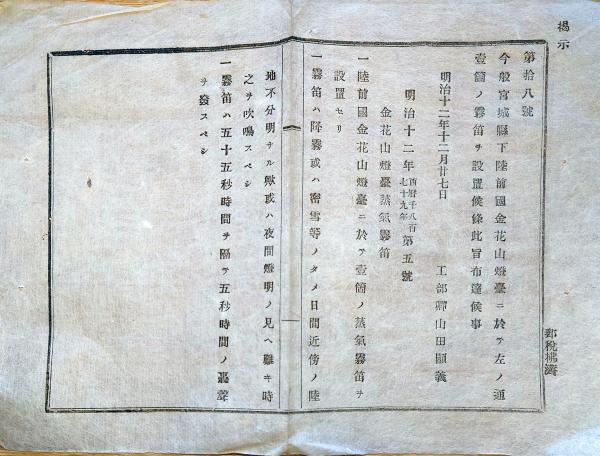 掲示
第拾八號
今般宮城縣下陸前國金花山燈臺ニ於テ左ノ通
壹箇ノ霧笛ヲ設置候條此旨布達候事
明治十二年十二月廿七日　工部卿山田顯義
明治十二年西曆千八百七十九年第五號
金花山燈臺蒸氣霧笛
一陸前國金花山燈臺ニ於テ壹箇ノ蒸氣霧笛ヲ
設置セリ
一霧笛ハ降霧或ハ密雪等ノタメ日間近傍ノ陸
地不分明ナル歟或ハ夜間燈明ノ見ヘ難キ時
之ヲ吹鳴スベシ
一霧笛ハ五十五秒時間ヲ隔テ五秒時間ノ轟聲
ヲ發スベシ
郵稅拂濟